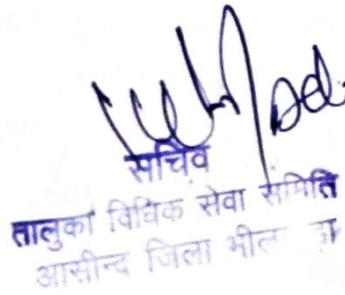 सचिव
तालुका विधिक सेवा समिति
आसीन्द जिला